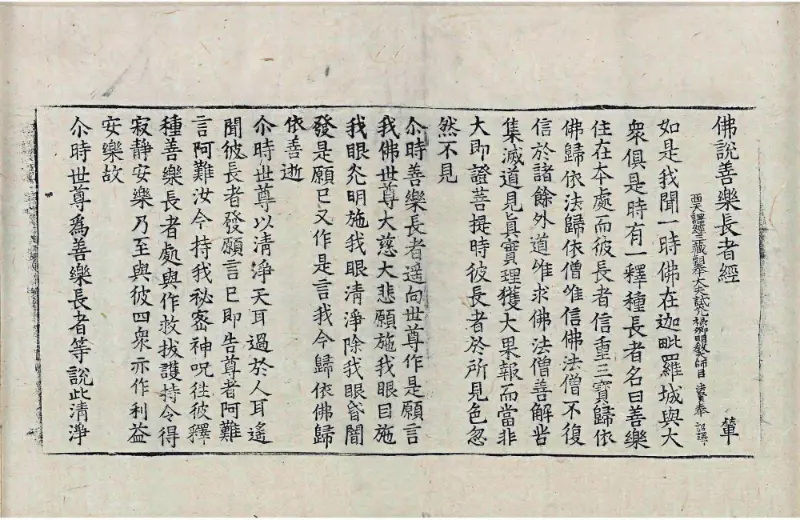 佛說善樂長者經
西天譯經三藏朝奉大夫試光祿卿明教大師臣 法賢奉 詔譯
如是我聞一時佛在迦毗羅城與大
衆俱是時有一釋種長者名曰善樂
住在本處而彼長者信重三寶歸依
佛歸依法歸依僧唯信佛法僧不復
信於諸餘外道唯求佛法僧善解苦
集滅道見眞實理獲大果報而當非
大即證菩提時彼長者於所見色忽
然不見
尒時善樂長者遥向世尊作是願言
我佛世尊大慈大悲願施我眼目施
我眼光明施我眼清淨除我眼昏闇
發是願已又作是言我今歸依佛歸
依善逝
尒時世尊以清淨天耳過於人耳遥
聞彼長者發願言已即告尊者阿難
言阿難汝今持我秘密神呪往彼釋
種善樂長者處與作救拔護持令得
寂靜安樂乃至與彼四衆亦作利益
安樂故
尒時世尊爲善樂長者等說此清淨